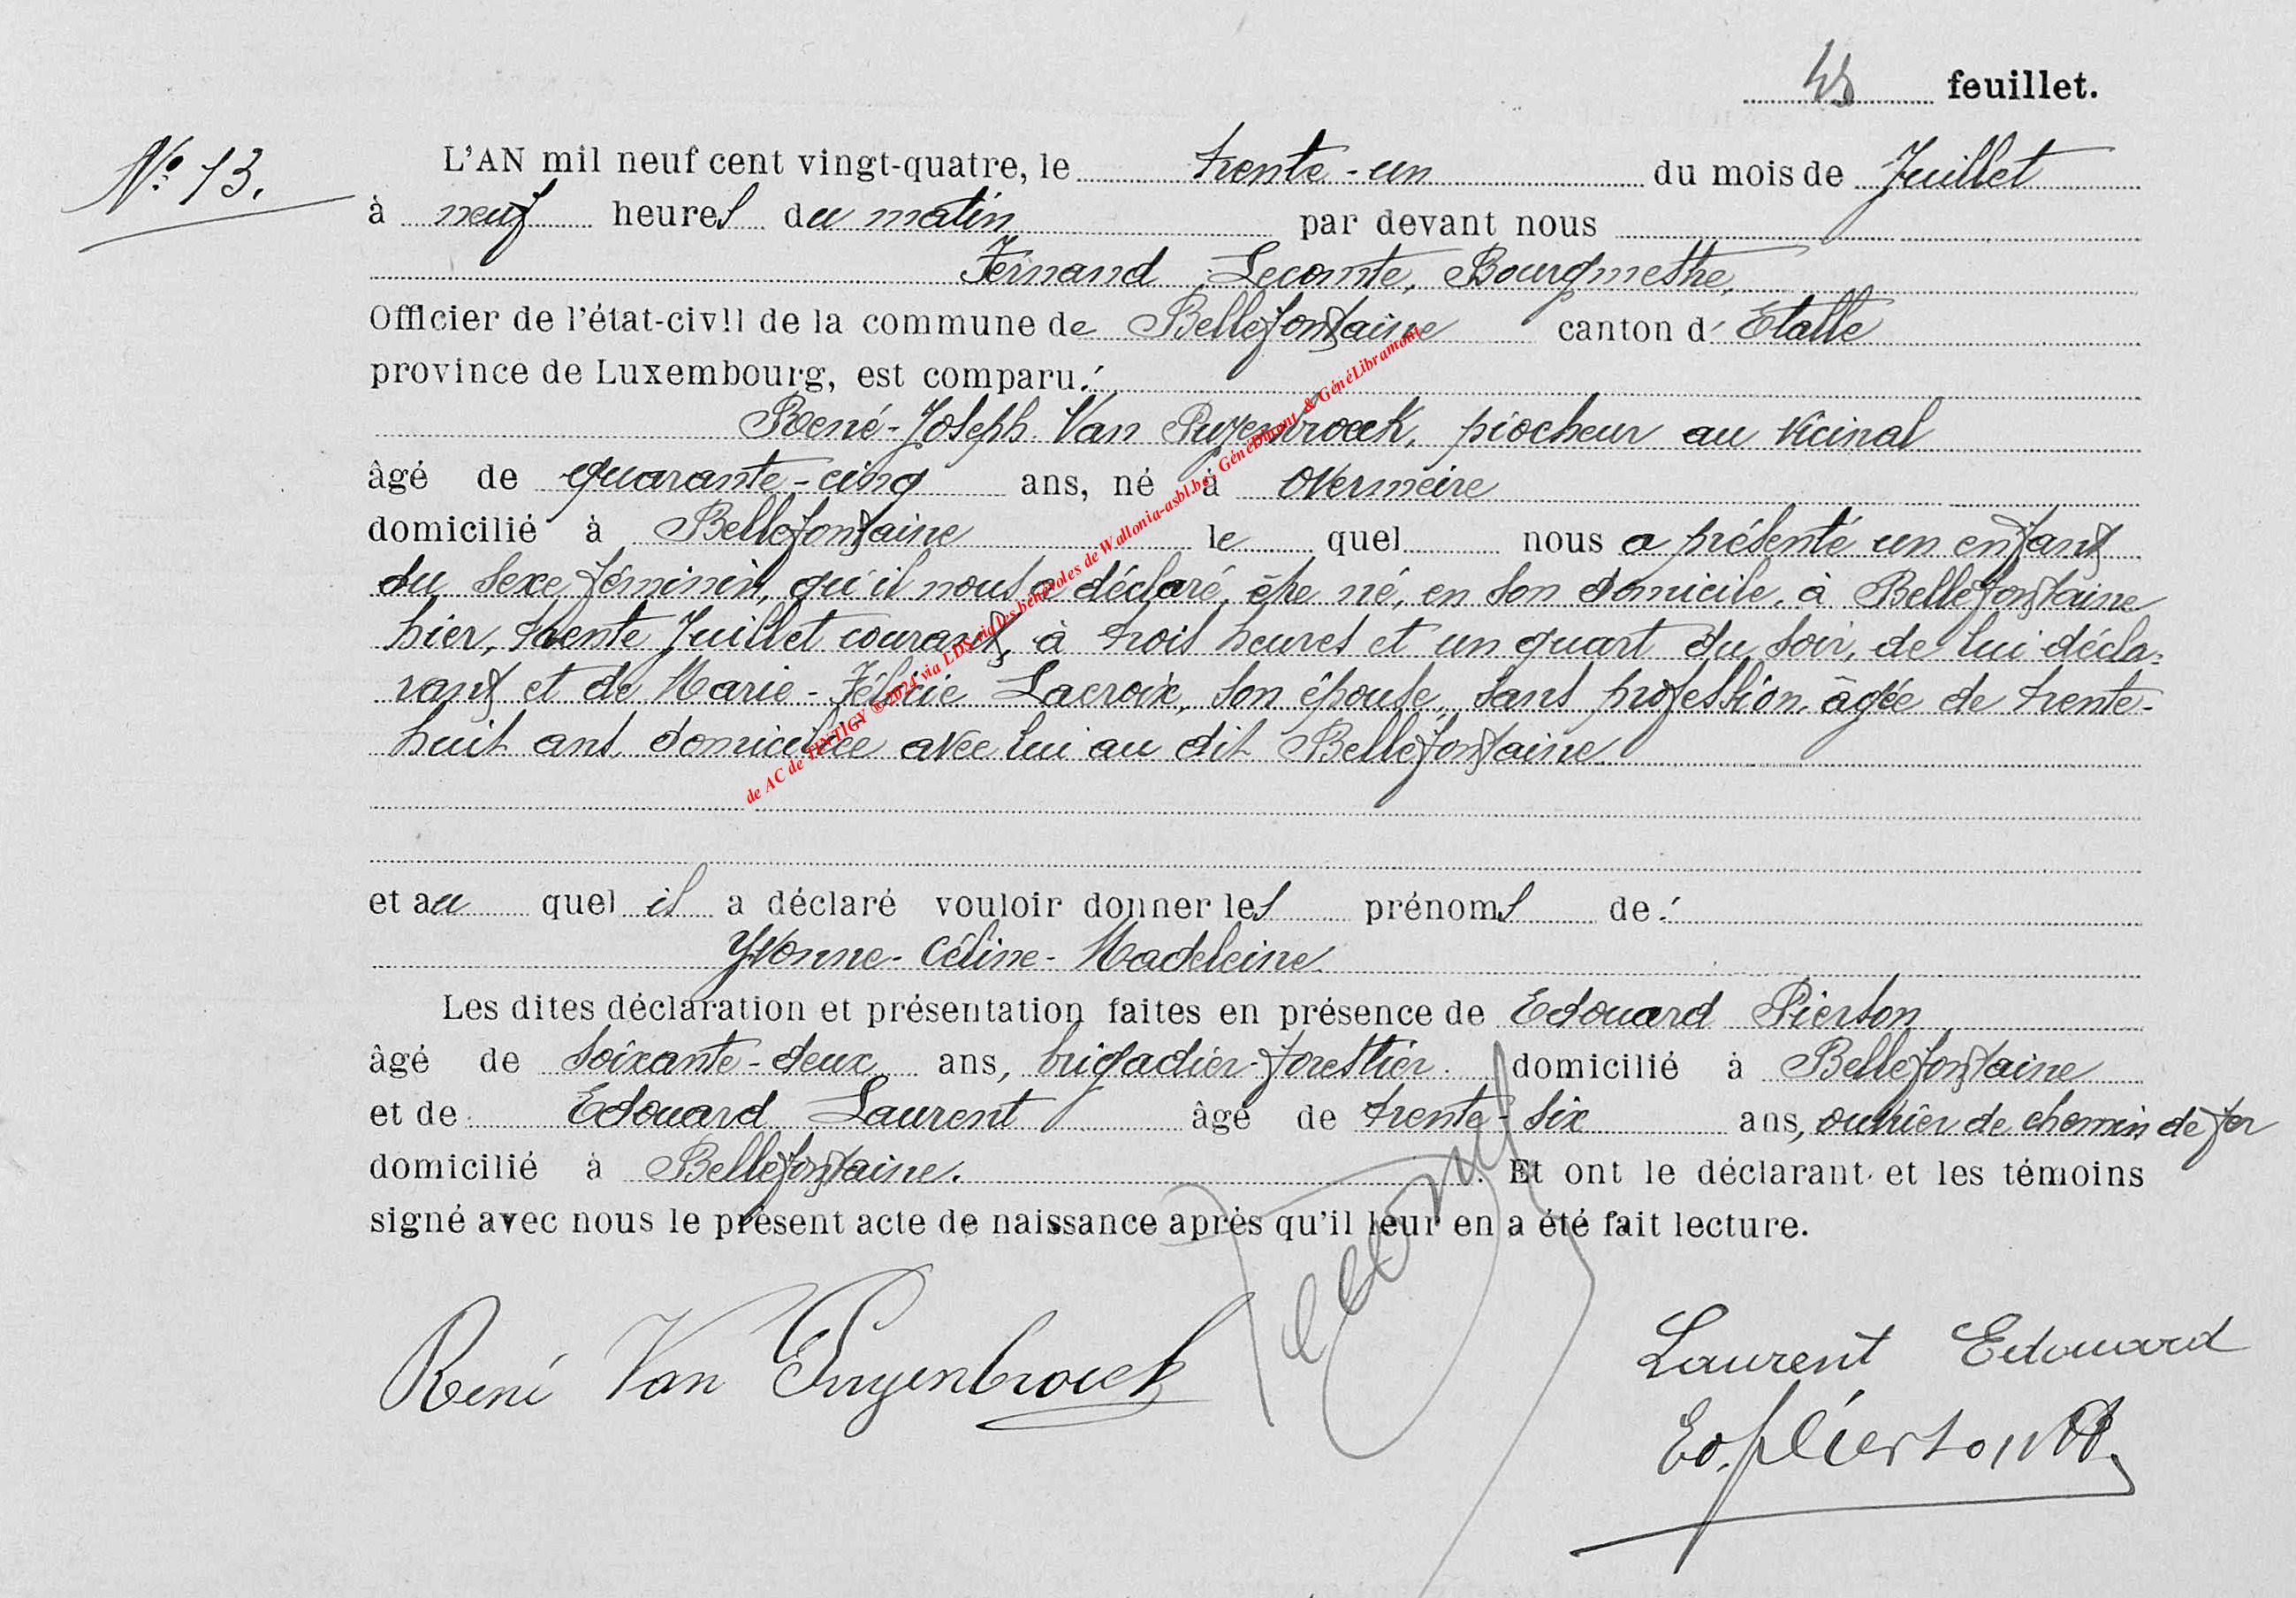 48 feuillet.
N° 13.
L'AN mil neuf cent vingt-quatre, le trente-un du mois de Juillet
à neuf heures du matin par devant nous
Fernand Lecomte, Bourgmestre,
Officier de l'état-civil de la commune de Bellefontaine canton d' Etalle
province de Luxembourg, est comparu:
René-Joseph Van Puyenbroeck, piocheur au Vicinal
âgé de quarante-cinq ans, né à Overmeire
domicilié à Bellefontaine le quel nous a présenté un enfant
du sexe féminin, qu'il nous a déclaré, être né, en son domicile, à Bellefontaine
hier, trente Juillet courant, à trois heures et un quart du soir, de lui décla-
rant et de Marie-Félicie Lacroix, son épouse, sans profession, âgée de trente-
huit ans, domiciliée avec lui au dit Bellefontaine
et au quel il a déclaré vouloir donner les prénoms de:
Yvonne-Céline-Madeleine.
Les dites déclaration et présentation faites en présence de Edouard Pierson
âgé de soixante-deux ans, brigadier-forestier. domicilié à Bellefontaine
et de Edouard Laurent âgé de trente-six ans, ouvrier de chemin de fer
domicilié à Bellefontaine. Et ont le déclarant et les témoins
signé avec nous le présent acte de naissance après qu'il leur en a été fait lecture.
Lecomte
René Van Puyenbrouck
Laurent Edouard
Ed. Pierson
de AC de TINTIGY ® 2024 via LDS via les bénévoles de Wallonia-asbl.be, GénéDinant & GénéLibramont